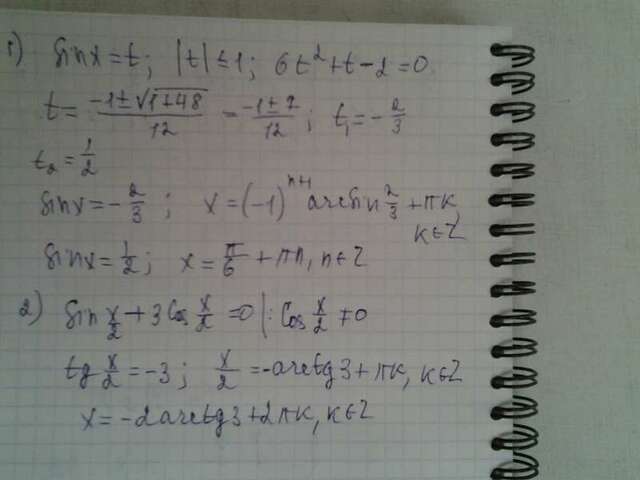 1) sinx = t; |t| ≤ 1; 6t² + t - 2 = 0
t = (-1 ± √(1+48))/12 = (-1 ± 7)/12; t₁ = -2/3
t₂ = 1/2
sinx = -2/3; x = (-1)ⁿ⁺¹ arcsin 2/3 + πk,
k∈Z
sinx = 1/2; x = π/6 + πn, n∈Z
2) sin x/2 + 3cos x/2 = 0 |: cos x/2 ≠ 0
tg x/2 = -3; x/2 = -arctg3 + πk, k∈Z
x = -2arctg3 + 2πk, k∈Z